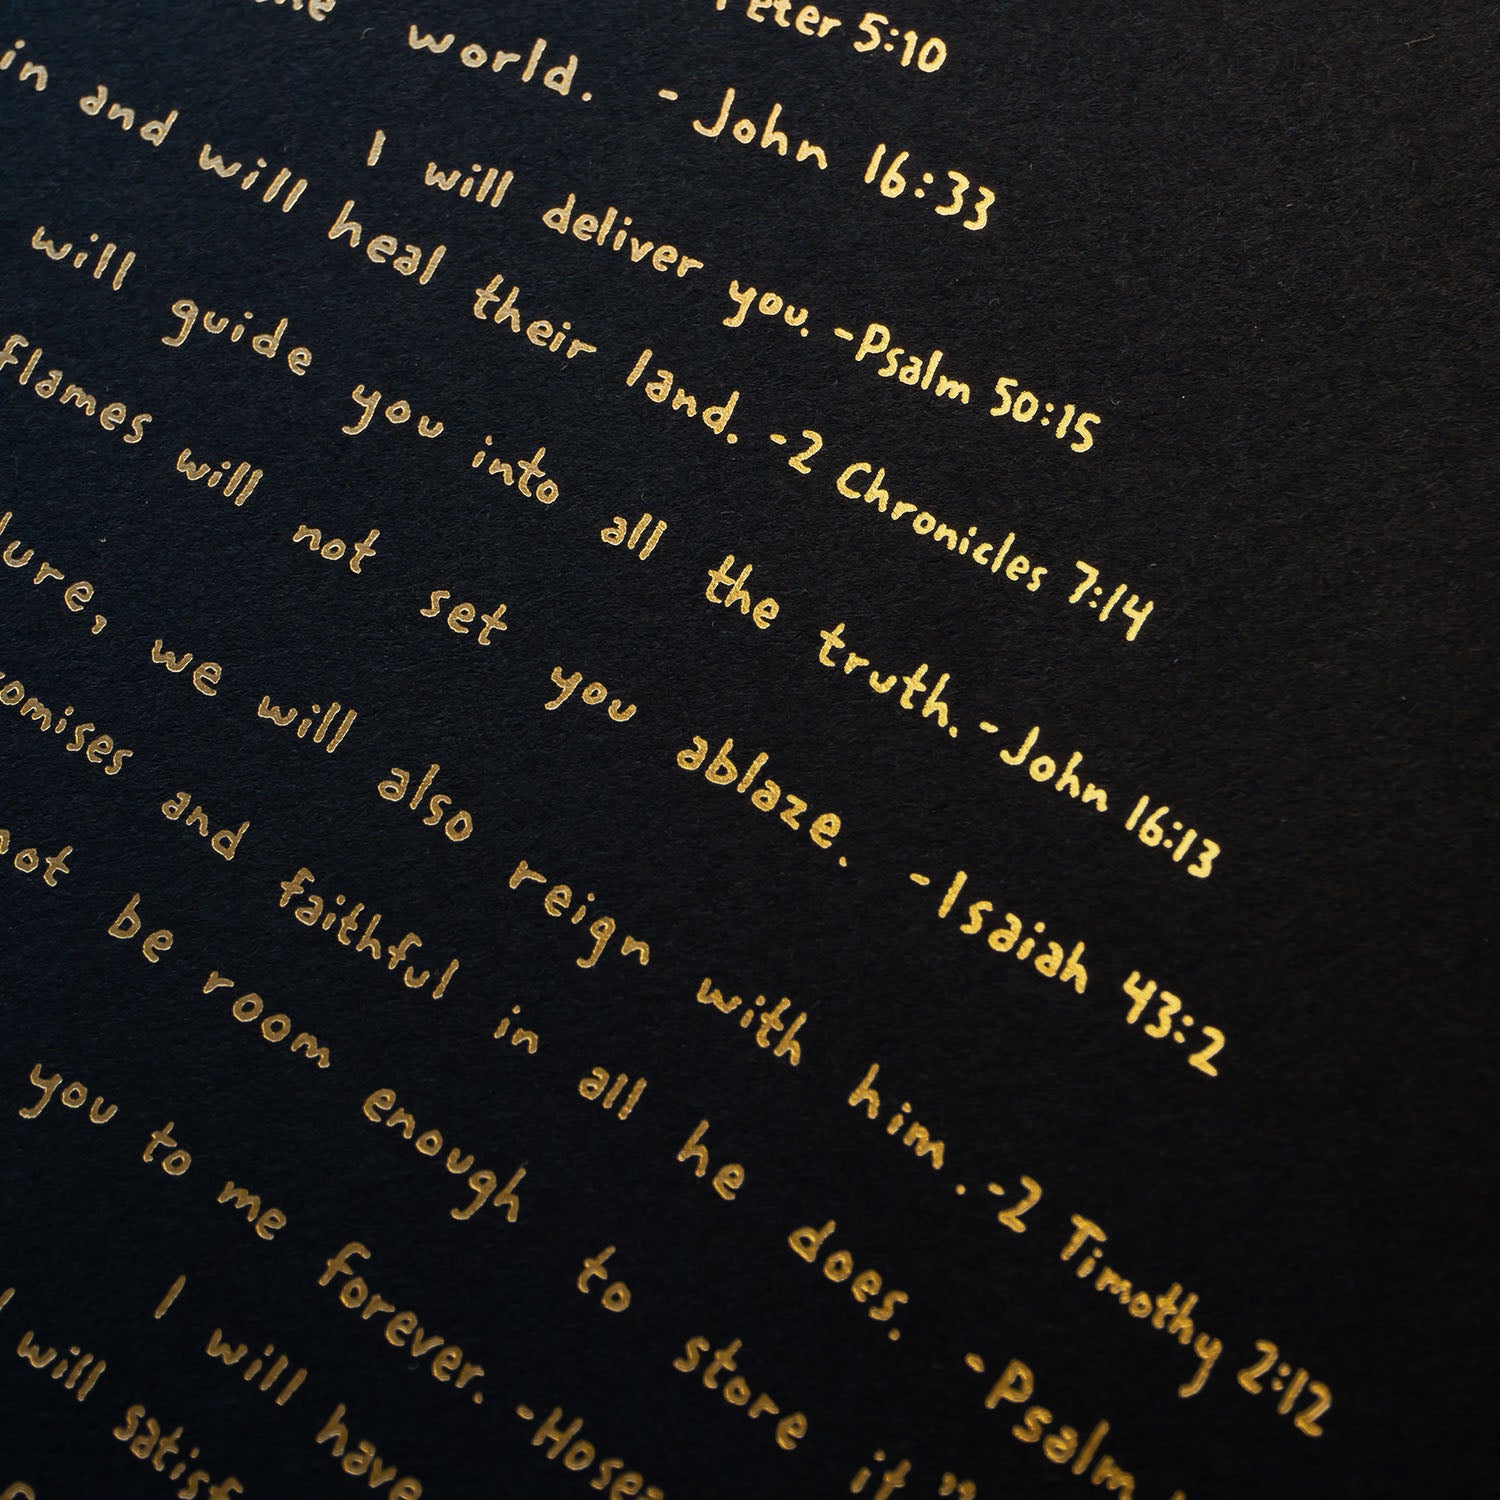 Peter 5:10
world. - John 16:33
I will deliver you. -Psalm 50:15
in and will heal their land. -2 Chronicles 7:14
will guide you into all the truth. -John 16:13
flames will not set you ablaze. -Isaiah 43:2
we will also reign with him. -2 Timothy 2:12
and faithful in all he does. -Psalm
not be room enough to store it"
you to me forever. -Hosea
I will have
will